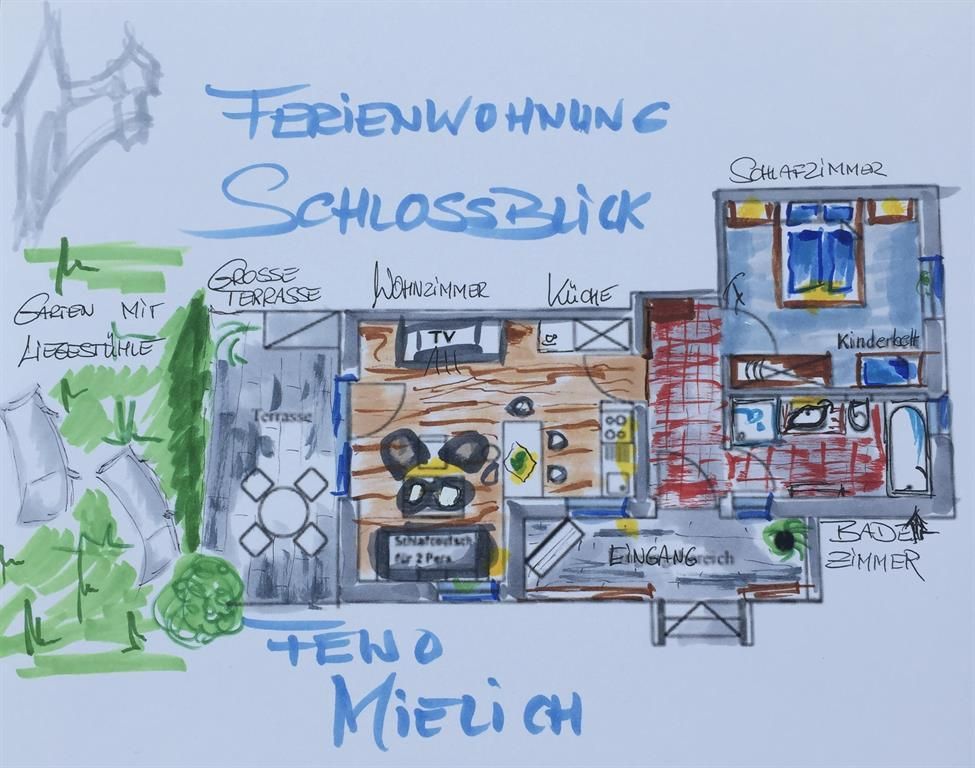 FERIENWOHNUNG
SCHLOSSBLICK
SCHLAFZIMMER
GROSSE
TERRASSE
WOHNZIMMER
KÜCHE
GARTEN MIT
LIEGESTÜHLE
TV
Kinderbett
Terrasse
Schlafcouch
für 2 Pers
EINGANG
BADE
ZIMMER
FEWO
MIELICH